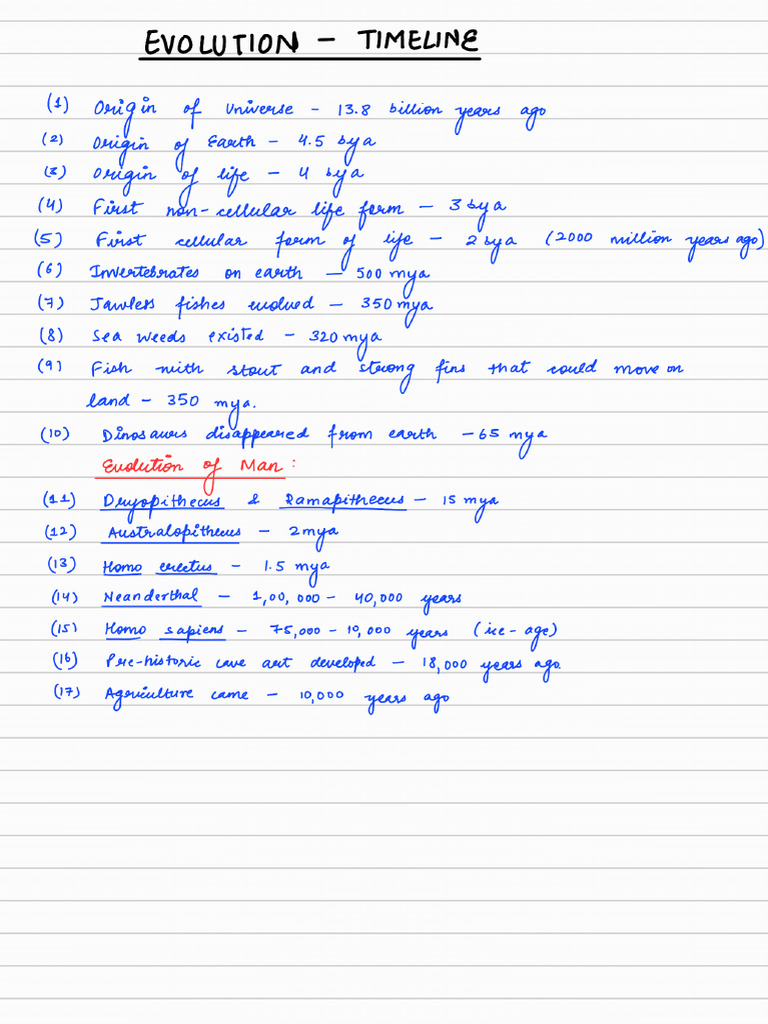 EVOLUTION - TIMELINE
(1) Origin of Universe - 13.8 billion years ago
(2) Origin of Earth - 4.5 bya
(3) Origin of life - 4 bya
(4) First non-cellular life form - 3 bya
(5) First cellular form of life - 2 bya (2000 million years ago)
(6) Invertebrates on earth - 500 mya
(7) Jawless fishes evolved - 350 mya
(8) Sea weeds existed - 320 mya
(9) Fish with stout and strong fins that could move on
land - 350 mya.
(10) Dinosaurs disappeared from earth - 65 mya
Evolution of Man :
(11) Dryopithecus & Ramapithecus - 15 mya
(12) Australopithecus - 2 mya
(13) Homo erectus - 1.5 mya
(14) Neanderthal - 1,00,000 - 40,000 years
(15) Homo sapiens - 75,000 - 10,000 years (ice-age)
(16) Pre-historic cave art developed - 18,000 years ago.
(17) Agriculture came - 10,000 years ago